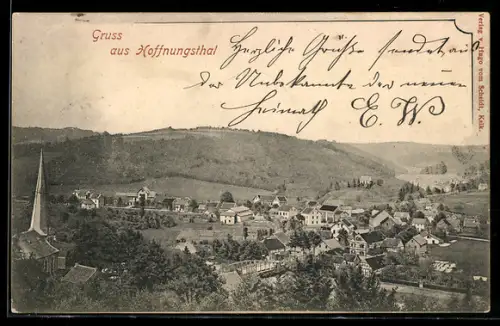 Gruss
aus Hoffnungsthal
Herzliche Grüße sendet aus
der Unbekannte der neuen
Heimath E. W.
Verlag v. Hugo vom Scheidt, Kalk.